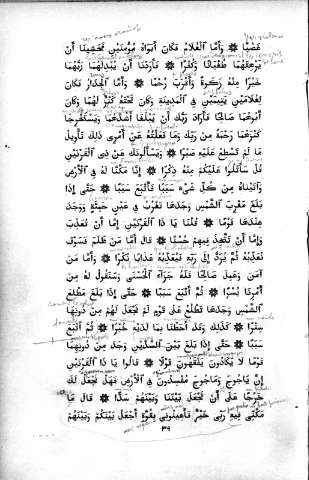 غصبا وأما الغلام فكان أبواه مؤمنين فخشينا أن
يرهقهما طغيانا وكفرا فأردنا أن يبدلهما ربهما
خيرا منه زكوة وأقرب رحما وأما الجدار فكان
لغلامين يتيمين في المدينة وكان تحته كنز لهما وكان
أبوهما صالحا فأراد ربك أن يبلغا أشدهما ويستخرجا
كنزهما رحمة من ربك وما فعلته عن أمري ذلك تأويل
ما لم تسطع عليه صبرا ويسألونك عن ذي القرنين
قل سأتلوا عليكم منه ذكرا إنا مكنا له في الأرض
وآتيناه من كل شيء سببا فأتبع سببا حتى إذا
بلغ مغرب الشمس وجدها تغرب في عين حمئة ووجد
عندها قوما قلنا يا ذا القرنين إما أن تعذب
وإما أن تتخذ فيهم حسنا قال أما من ظلم فسوف
نعذبه ثم يرد إلى ربه فيعذبه عذابا نكرا وأما من
آمن وعمل صالحا فله جزاء الحسنى وسنقول له من
أمرنا يسرا ثم أتبع سببا حتى إذا بلغ مطلع
الشمس وجدها تطلع على قوم لم نجعل لهم من دونها
سترا كذلك وقد أحطنا بما لديه خبرا ثم أتبع
سببا حتى إذا بلغ بين السدين وجد من دونهما
قوما لا يكادون يفقهون قولا قالوا يا ذا القرنين
إن ياجوج وماجوج مفسدون في الأرض فهل نجعل لك
خرجا على أن تجعل بيننا وبينهم سدا قال ما
مكني فيه ربي خير فأعينوني بقوة أجعل بينكم وبينهم
٣٩